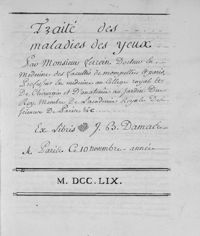 Traité des
maladies des yeux
Par Monsieur Ferrein Docteur en
Medecine des facultés de montpellier & paris
Professeur en medecine au College royal &
De Chirurgie et D'anatomie au Jardin Du
Roy, Membre De L'academie Royale Des
sciences De Paris &c
Ex Libris J. B. Damale
A Paris Ce 10 novembre année
M. DCC. LIX.